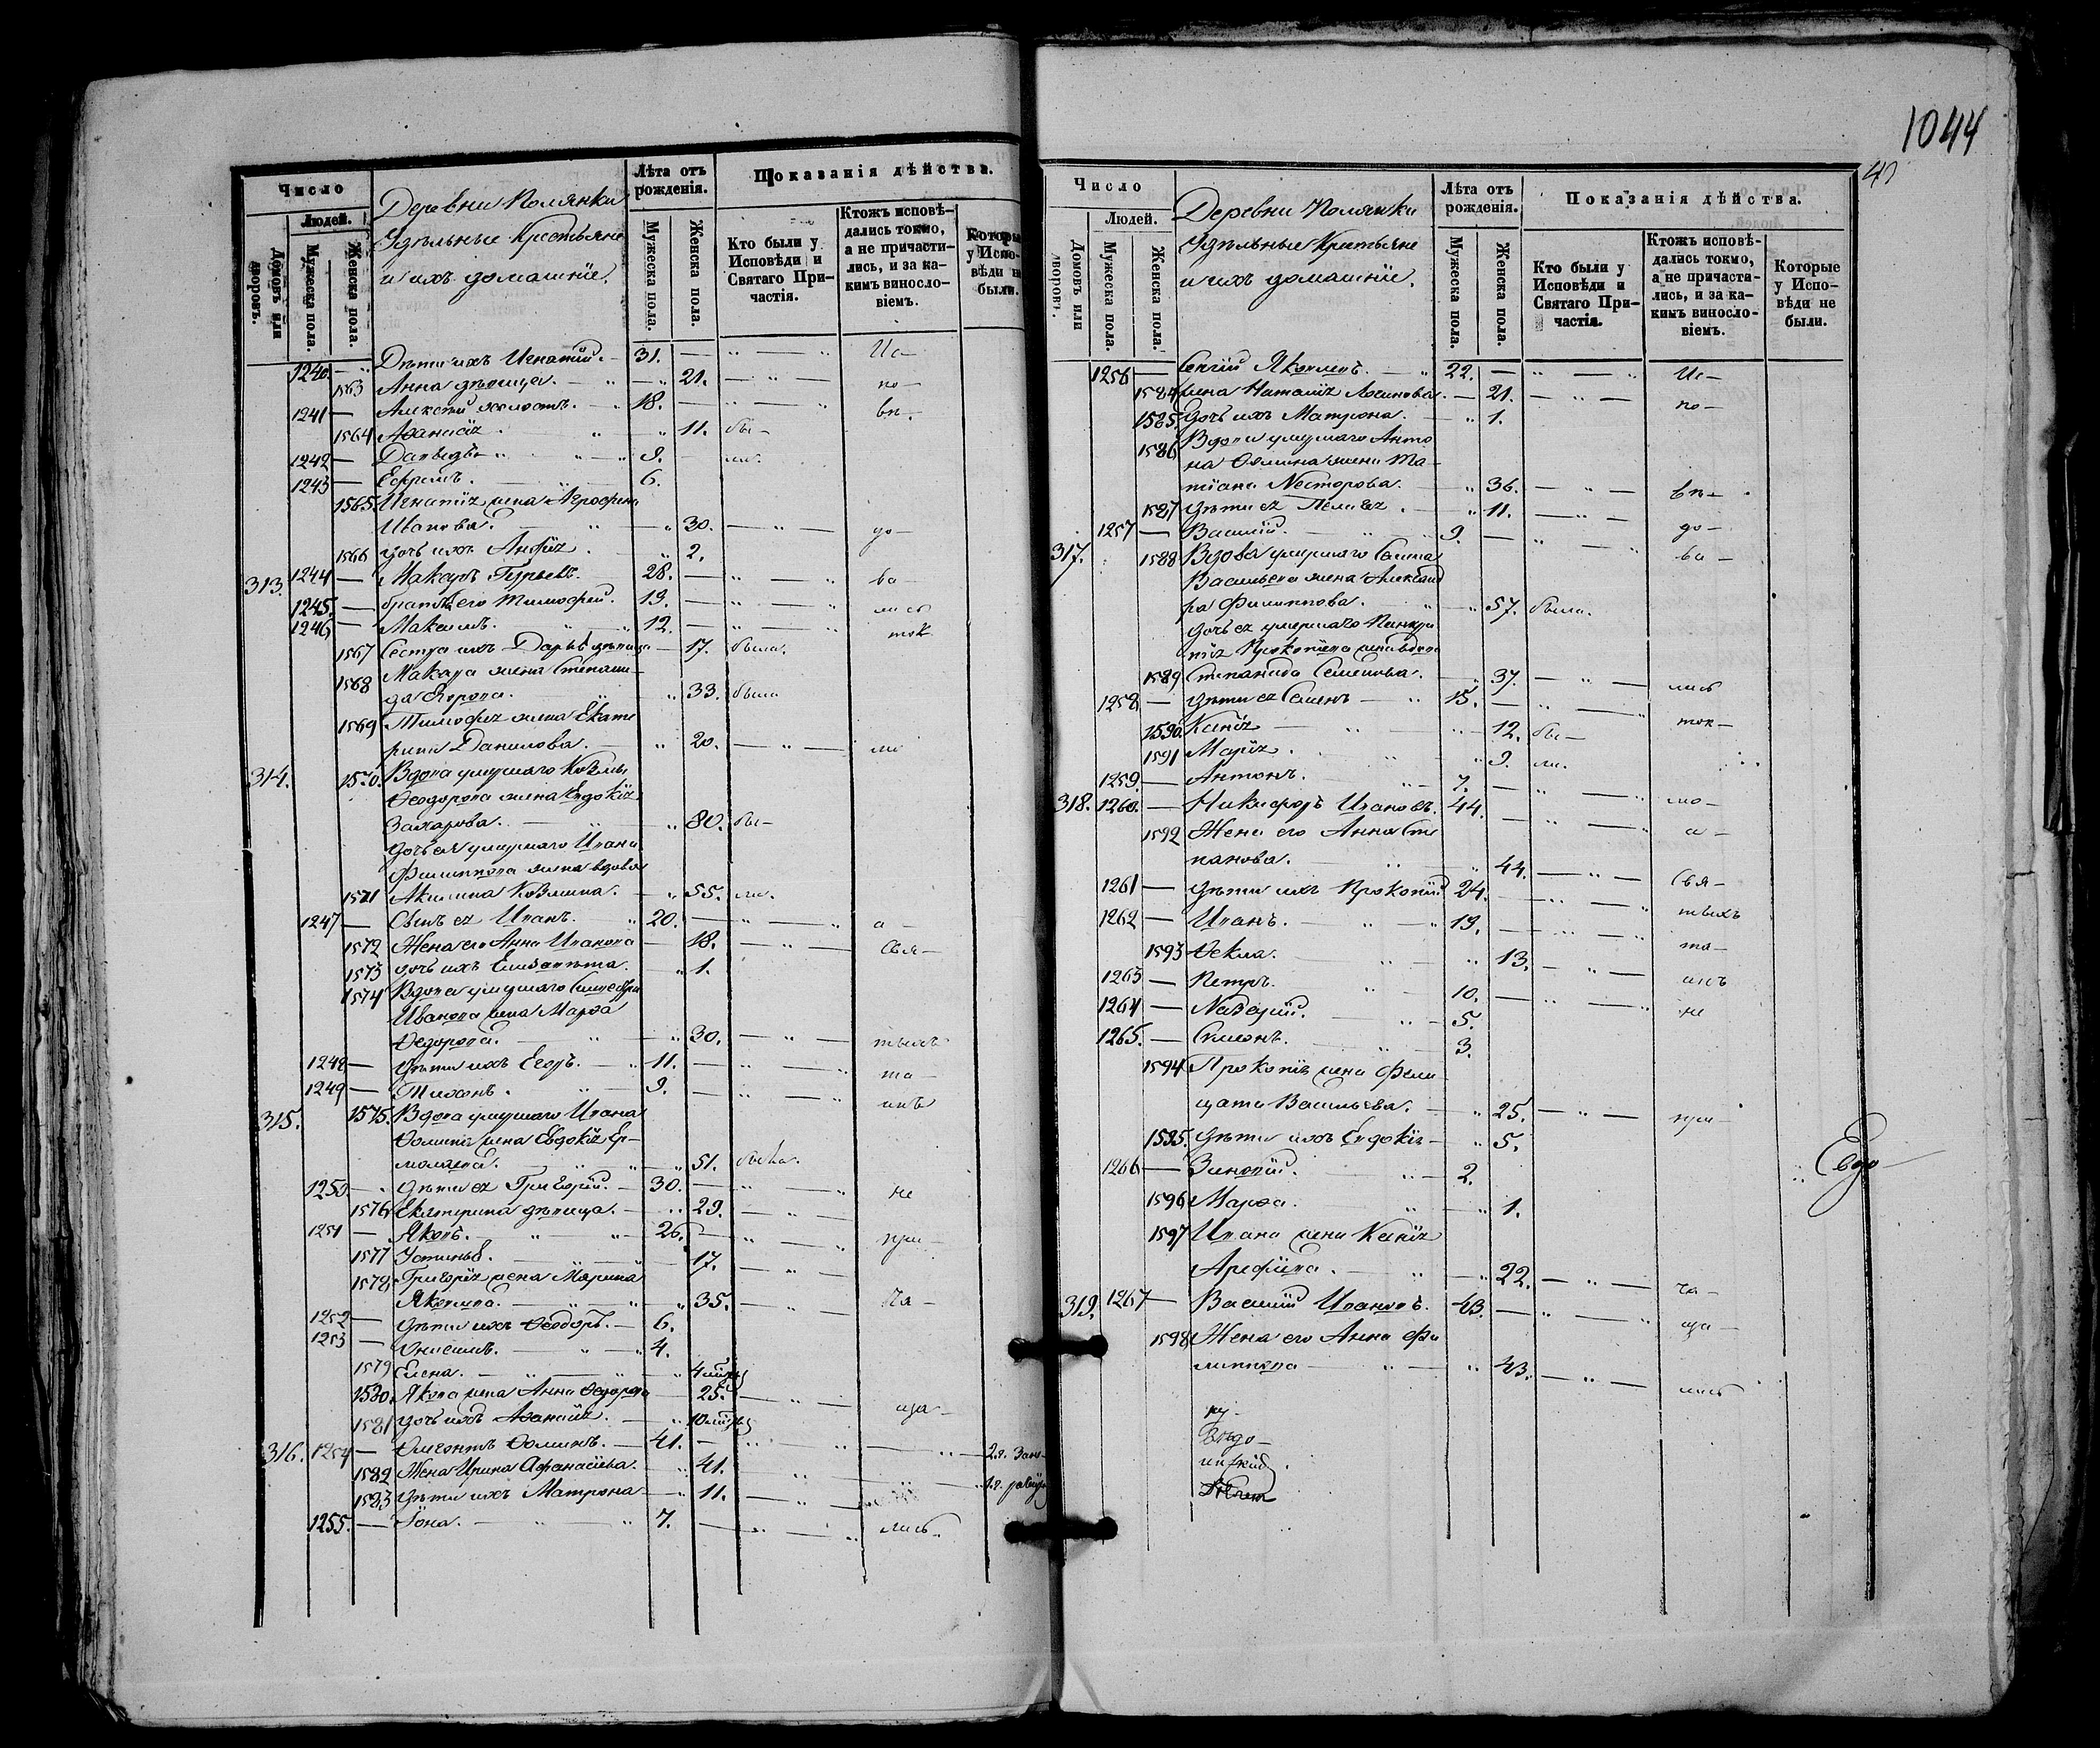 1044
Число
Людей.
Домовъ или дворовъ.
Мужеска пола.
Женска пола.
Деревни Полянки
Удѣльные Крестьяне
и ихъ домашніе.
Лѣта отъ рожденія.
Мужеска пола.
Женска пола.
Показанія дѣйства.
Кто были у Исповѣди и Святаго Причастія.
Ктожъ исповѣдались токмо, а не причастились, и за какимъ винословіемъ.
Которые у Исповѣди не были.
1240. — Дѣти ихъ Игнатій. 31. — Ис—
1563 Анна дѣвица. — 21. — по—
1241 — Алексѣй холостъ. 18. — вѣ.
1564 Аѳанасія. 11. бы—
1242 — Давыдъ 9. ли.
1243 — Ефремъ. 6.
1565 Игнатія жена Агрофена
Иванова. — 30. — до—
1566 дочь ихъ Анфія. 2.
313. 1244 — Макаръ Гурьевъ. 28. — ва—
1245. — братъ его Тимофей. 19. — лись
1246 — Максимъ. 12. — ток
1567 Сестра ихъ Дарья дѣвица — 17. была.
1568 Макара жена Степани-
да Егорова. 33. была
1569 Тимофея жена Екате
рина Данилова. 20. — мо
314. 1570. Вдова умершаго Козмы
Ѳеодорова жена Евдокія
Захарова. 80. бы—
дочь ея умершаго Ивана
Филиппова жена вдова
1571 Акилина Козмина. 55. ли.
1247 — Сынъ ея Иванъ. 20. — а—
1572 Жена его Анна Иванова — 18. — Свя—
1573 дочь ихъ Елизавета. 1.
1574 Вдова умершаго
Иванова жена Марѳа
Ѳедорова. 30. — тыхъ
1248 — Дѣти ихъ Егоръ. 11. — та—
1249 — Тихонъ. 9. — инъ
315. 1575. Вдова умершаго Ивана
Ѳомина жена Евдокія Ер-
молаева. 51. была.
1250 — Дѣти ея Григорій. 30. — не
1576 Екатерина дѣвица. 29.
1251 — Яковъ. 26. — при—
1577 Устинья. 17.
1578 Григорія жена Марина
Яковлева. 35. — ча—
1252 — Дѣти ихъ Ѳеодоръ. 6.
1253 — Онисимъ. 4.
1579 Елена. 4
1580. Якова жена Анна Ѳедорова 25. — ща—
1581 дочь ихъ Аѳанасія. 10
316. 1254 — Ѳомпинъ. 41. — 2.
1582 Жена Ирина Афанасіева. 41.
1583 Дѣти ихъ Матрона 11.
1255. — Іона. 7. — лись.
Число
Людей.
Домовъ или дворовъ.
Мужеска пола.
Женска пола.
Деревни Полянки
Удѣльные Крестьяне
и ихъ домашніе.
Лѣта отъ рожденія.
Мужеска пола.
Женска пола.
Показанія дѣйства.
Кто были у Исповѣди и Святаго Причастія.
Ктожъ исповѣдались токмо, а не причастились, и за какимъ винословіемъ.
Которые у Исповѣди не были.
1256 — Сергій Яковлевъ. 22. — Ис—
1584 Жена Наталія Логинова. — 21. — по—
1585. Дочь ихъ Матрона. 1.
1586 Вдова умершаго Анто
на Ѳомина жена Та-
тіана Несторова. 36. — вѣ—
1587 Дѣти ея Пелагея. 11. — до—
1257 — Василій. 9. — ва—
317. 1588 Вдова умершаго
Васильева жена Александ
ра Филиппова. 57. была.
дочь ея умершаго
Прокопіева жена вдова
1589 Степанида Семенова. 37. — лись
1258 — Дѣти ея Семенъ 15. — ток—
1590. Ксенія 12. бы—
1591 Марія. 9. ли.
1259 — Антонъ. 7. — мо—
318. 1260. — Никифоръ Ивановъ. 44. — а—
1592 Жена его Анна Сте
панова. 44. — Свя—
1261 — Дѣти ихъ Прокопій 24. — тыхъ
1262 — Иванъ. 19. — та—
1593 Ѳекла. 13. — инъ
1263 — Петръ. 10. — не
1264 — Назарій. 5.
1265. — Симонъ. 3.
1594 Прокопія жена Фели
цата Васильева. 25. — при—
1595. Дѣти ихъ Евдокія 5.
1266 — Зиновій. 2.
1596 Марѳа. 1.
1597 Ивана жена Ксенія
Арефіева. 22. — ча—
319. 1267 — Василій Ивановъ. 43. — ща—
1598 Жена его Анна Фи
липпова 43. — лись
Евдо—